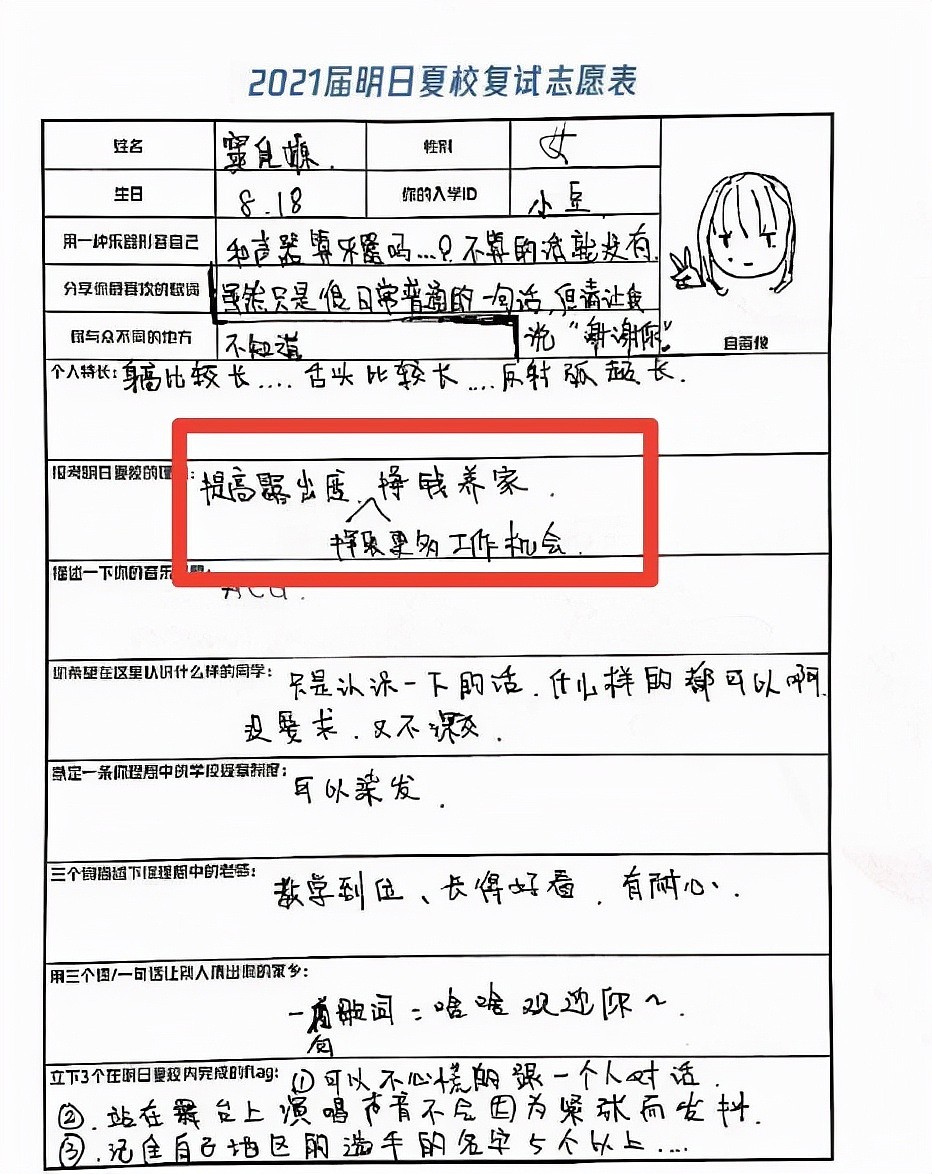 2021届明日夏校复试志愿表
姓名 窦 性别 女
生日 8.18 你的入学ID 小豆
用一种乐器形容自己 和声器算乐器吗...? 不算的话就没有.
分享你最喜欢的歌词 虽然只是很日常普通的一句话,但请让我
说“谢谢你”.
你与众不同的地方 不知道
自画像
个人特长: 身高比较长.... 舌头比较长....反射弧超长.
报考明日夏校的理由: 提高露出度、挣钱养家.
择取更多工作机会.
描述一下你的音乐 : ACG.
你希望在这里认识什么样的同学: 只是认识一下的话.什么样的都可以啊.
没要求.又不课.
制定一条你理想中的学校 : 可以染发.
三个词描述下你理想中的老师: 教学到位、长得好看.有耐心.
用三个词/一句话让别人猜出你的家乡:
一句歌词:啥啥欢迎你~.
立下3个在明日夏校内完成的flag: ①可以不心慌的跟一个人对话.
②.站在舞台上演唱声音不会因为紧张而发抖.
③.记住自己地区的选手的名字5个以上....